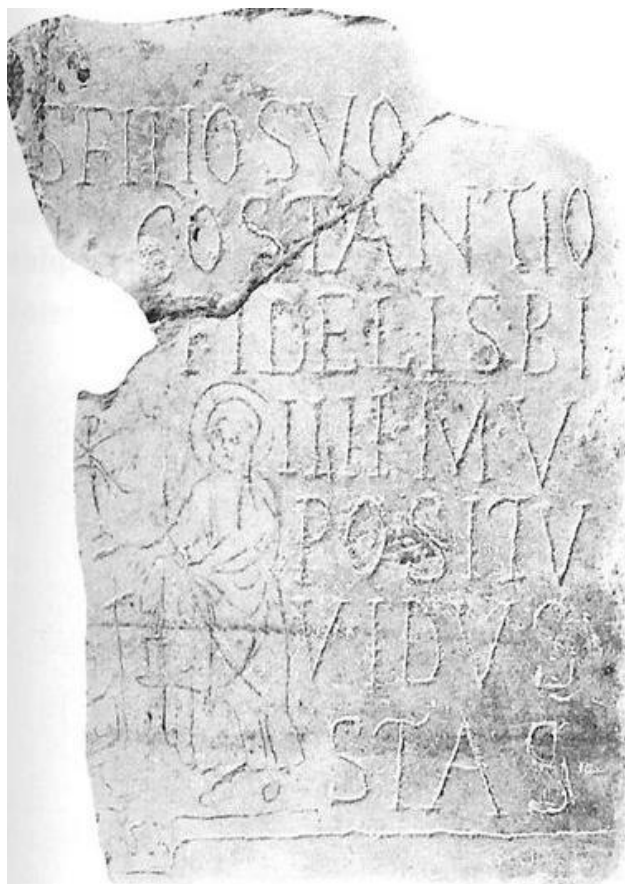 S FILIO SVO
COSTANTIO
FIDELIS BI
IIII M V
POSITV
V IDVS
STAS